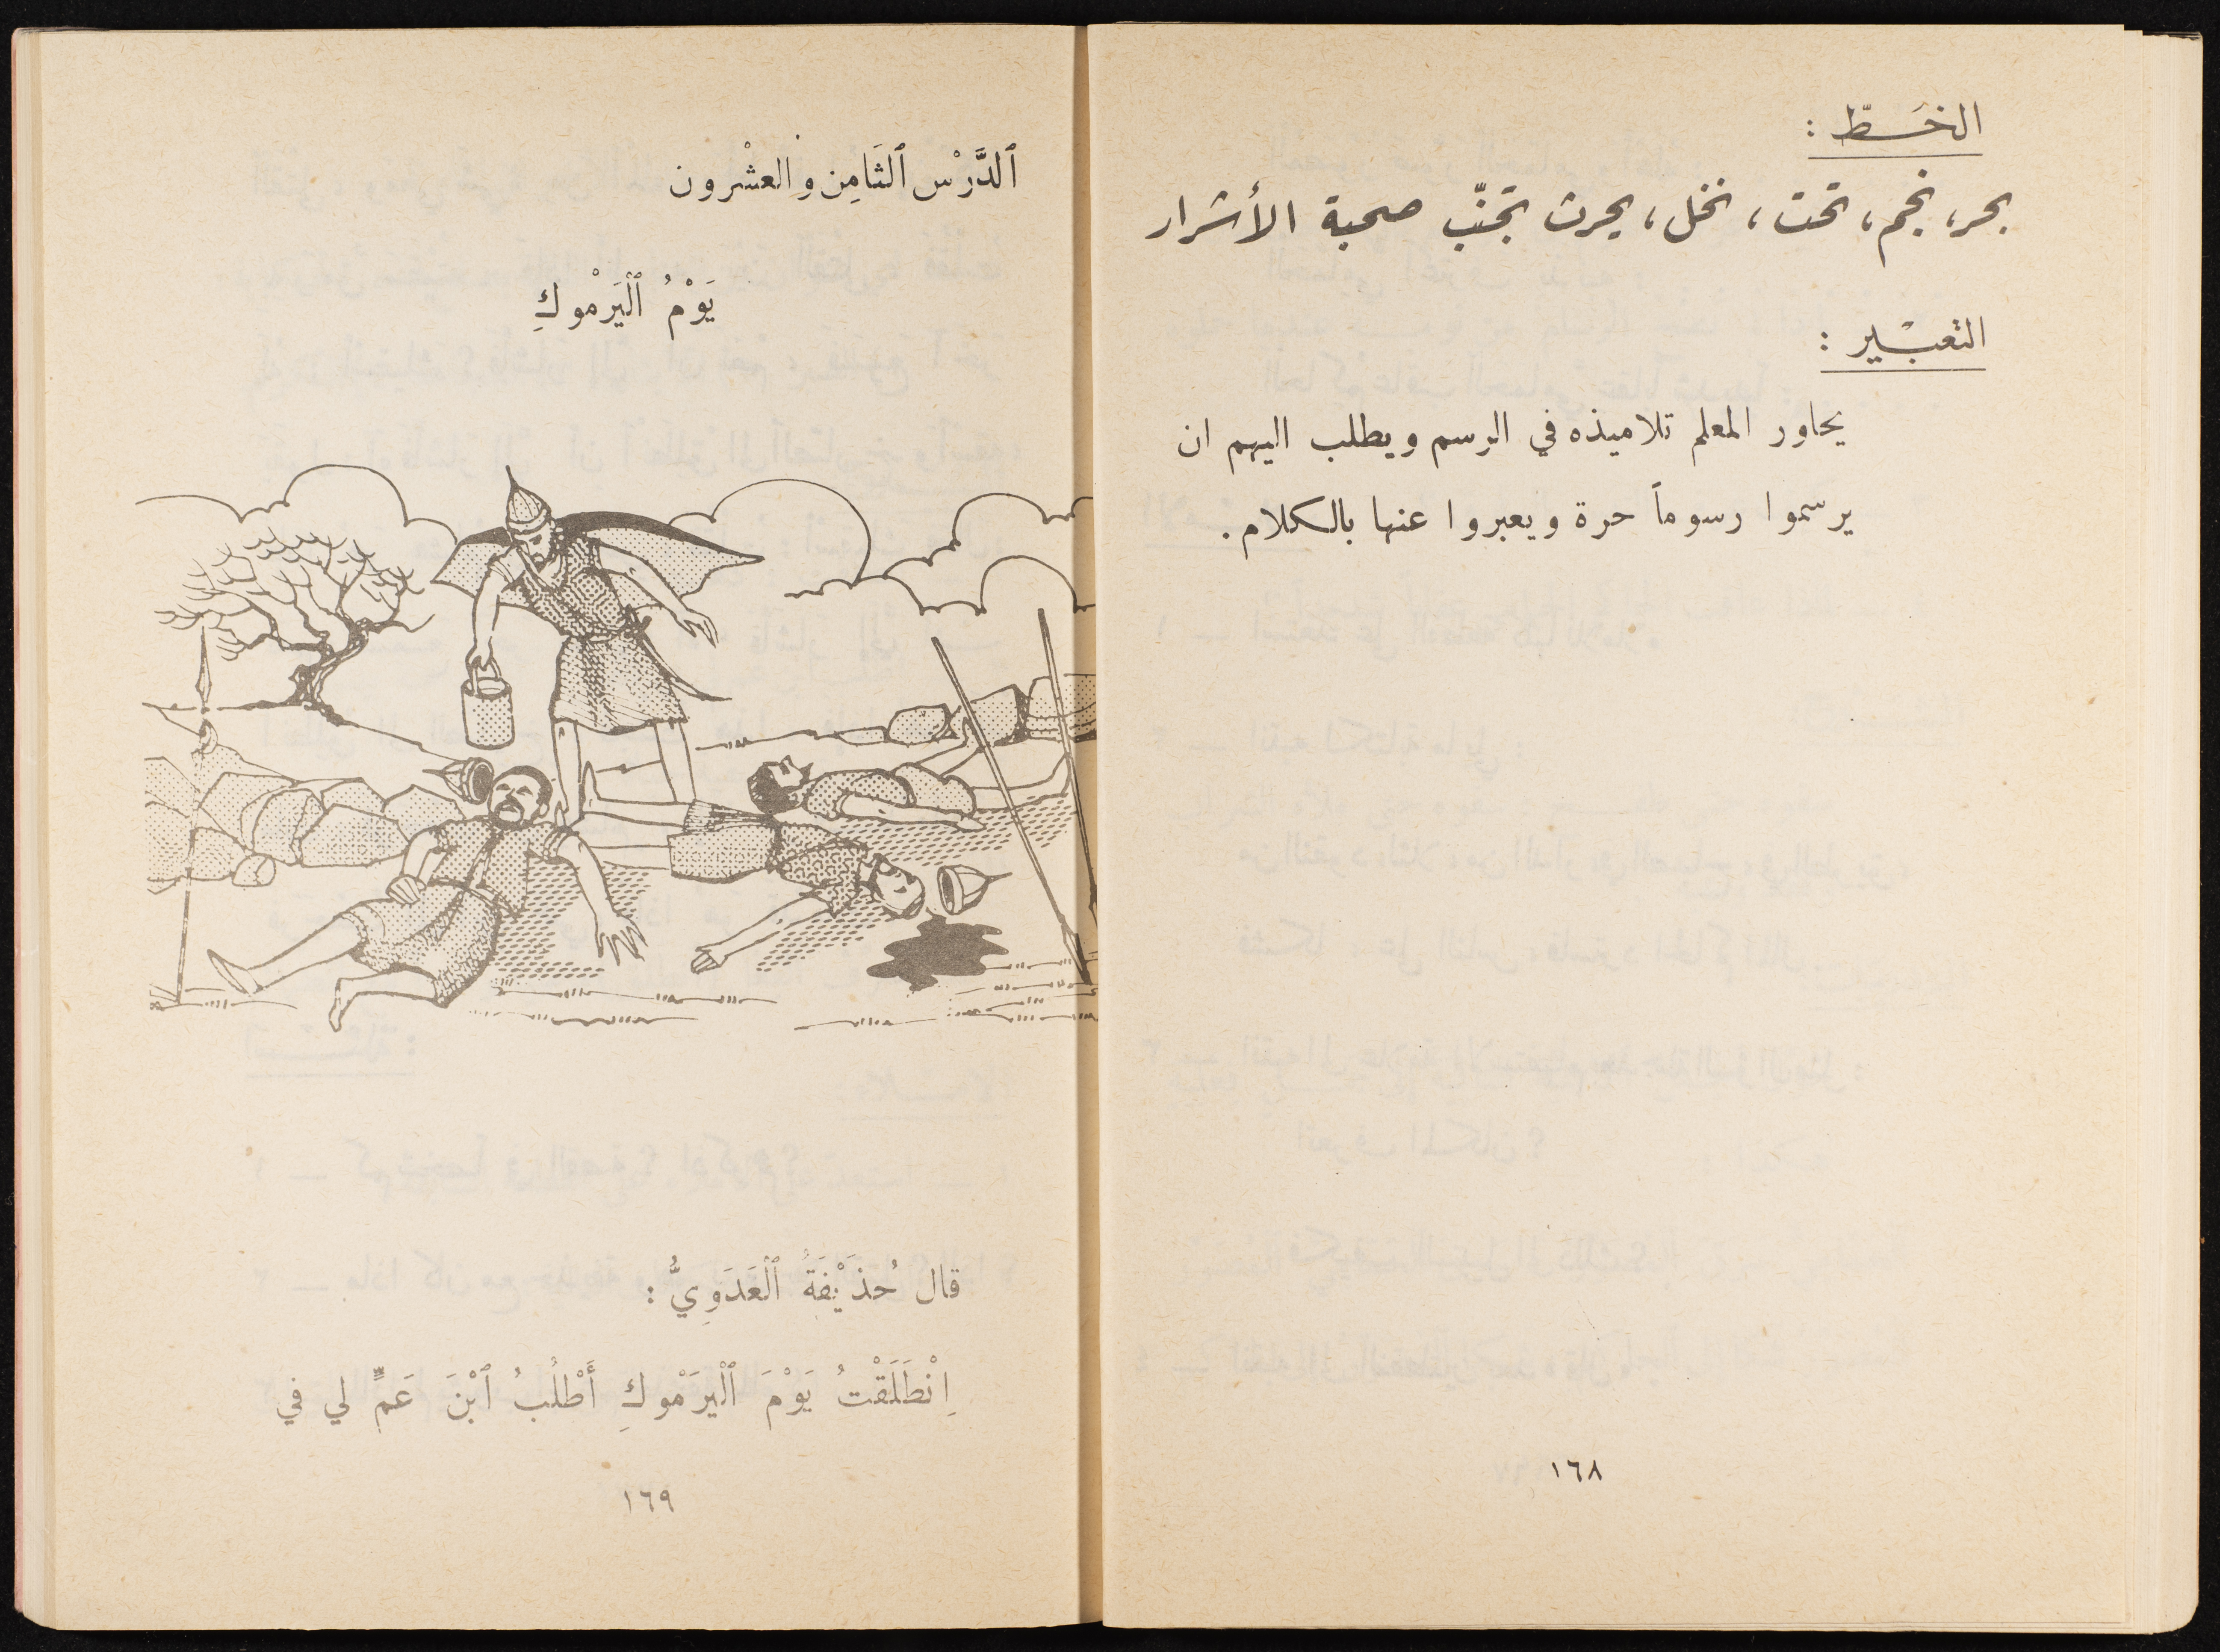 الخَـطّ :
بحر، نجم، تحت، نخل، يحرث تجنّب صحبة الأشرار
التعبْـير :
يحاور المعلم تلاميذه في الرسم ويطلب اليهم ان
يرسموا رسوماً حرة ويعبروا عنها بالكلام.
١٦٨
ٱلدَّرْس ٱلثَامِن والعشْرون
يَوْمُ ٱلْيَرْموكِ
قال حُذَيْفَةُ ٱلْعَدَوِيُّ :
اِنْطَلَقْتُ يَوْمَ ٱلْيَرْموكِ أَطْلُبُ ٱبْنَ عَمٍّ لي في
١٦٩